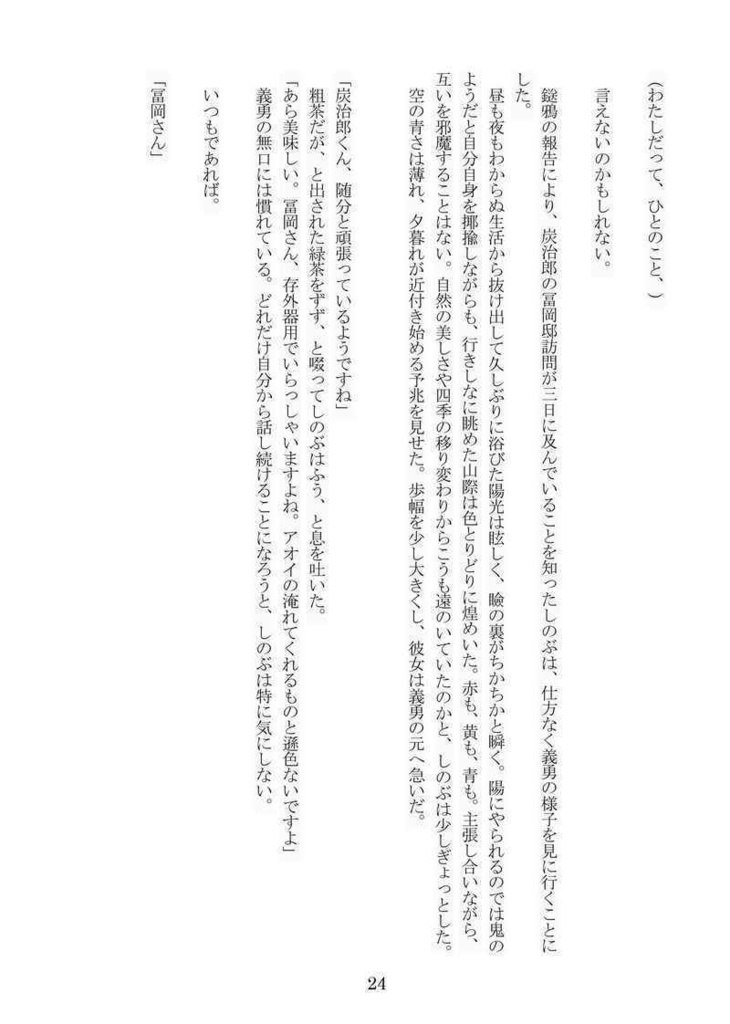 (わたしだって、ひとのこと、)
言えないのかもしれない。
鎹鴉の報告により、炭治郎の冨岡邸訪問が三日に及んでいることを知ったしのぶは、仕方なく義勇の様子を見に行くことに
した。
昼も夜もわからぬ生活から抜け出して久しぶりに浴びた陽光は眩しく、瞼の裏がちかちかと瞬く。陽にやられるのでは鬼の
ようだと自分自身を揶揄しながらも、行きしなに眺めた山際は色とりどりに煌めいた。赤も、黄も、青も。主張し合いながら、
互いを邪魔することはない。自然の美しさや四季の移り変わりからこうも遠のいていたのかと、しのぶは少しぎょっとした。
空の青さは薄れ、夕暮れが近付き始める予兆を見せた。歩幅を少し大きくし、彼女は義勇の元へ急いだ。
「炭治郎くん、随分と頑張っているようですね」
粗茶だが、と出された緑茶をずず、と啜ってしのぶはふう、と息を吐いた。
「あら美味しい。冨岡さん、存外器用でいらっしゃいますよね。アオイの淹れてくれるものと遜色ないですよ」
義勇の無口には慣れている。どれだけ自分から話し続けることになろうと、しのぶは特に気にしない。
いつもであれば。
「冨岡さん」
24